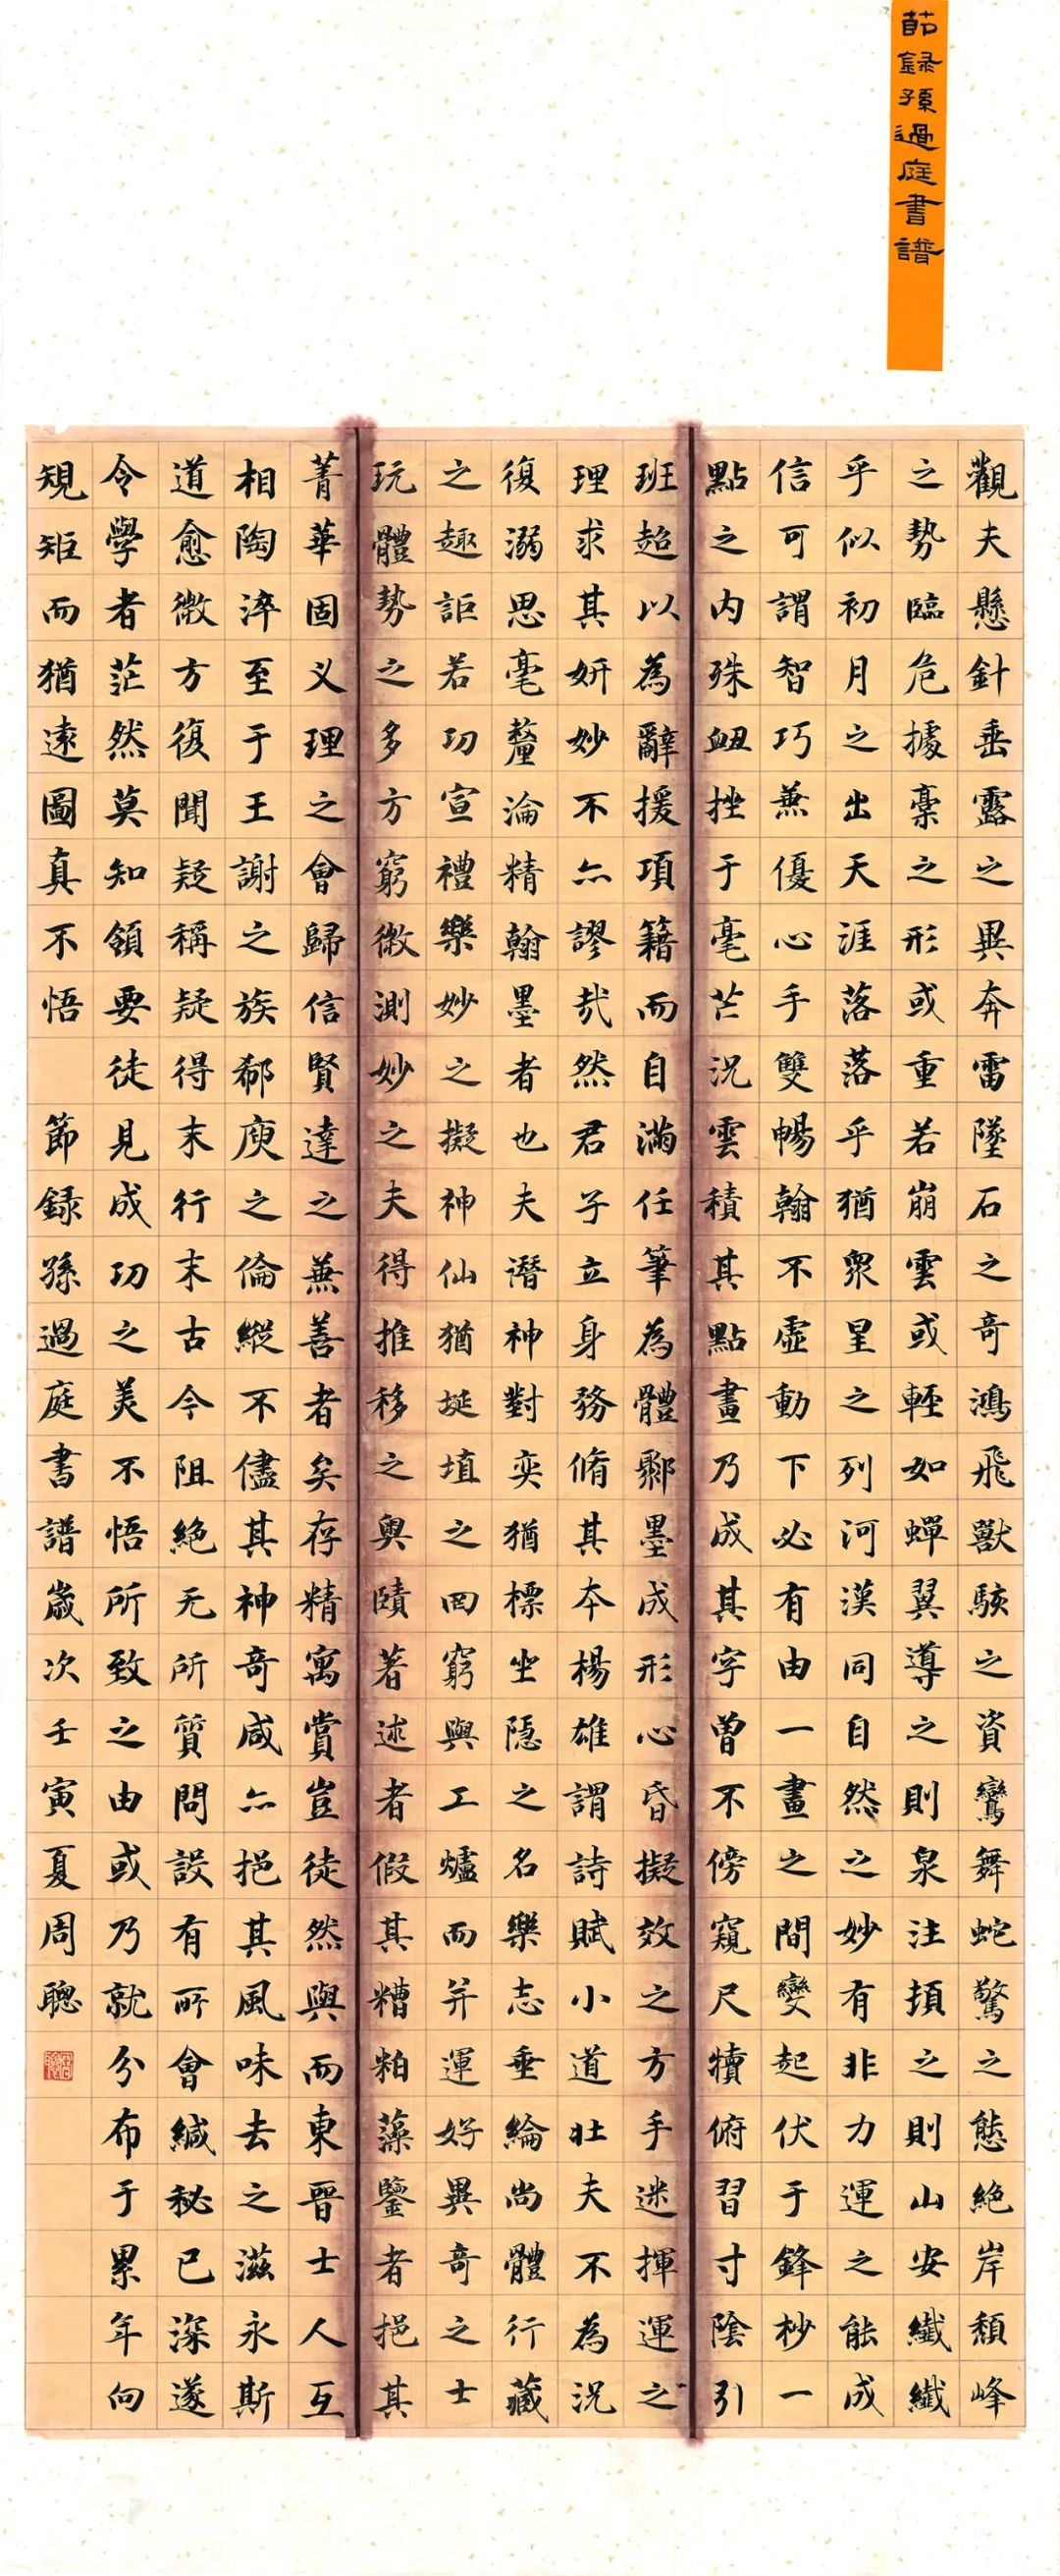 節錄孫過庭書譜
觀夫懸針垂露之異奔雷墜石之奇鴻飛獸駭之資鸞舞蛇驚之態絕岸頹峰
之勢臨危據槀之形或重若崩雲或輕如蟬翼導之則泉注頓之則山安纖纖
乎似初月之出天涯落落乎猶眾星之列河漢同自然之妙有非力運之能成
信可謂智巧兼優心手雙暢翰不虛動下必有由一畫之間變起伏于鋒杪一
點之內殊衄挫于毫芒況雲積其點畫乃成其字曾不傍窺尺犢俯習寸陰引
班超以為辭援項籍而自滿任筆為體聚墨成形心昏擬效之方手迷揮運之
理求其妍妙不亦謬哉然君子立身務脩其本楊雄謂詩賦小道壯夫不為況
復溺思毫釐淪精翰墨者也夫潛神對奕猶標坐隱之名樂志垂綸尚體行藏
之趣詎若功宣禮樂妙之擬神仙猶埏埴之罔窮與工爐而并運好異奇之士
玩體勢之多方窮微測妙之夫得推移之奧賾著述者假其糟粕藻鑒者挹其
菁華固义理之會歸信賢達之兼善者矣存精寓賞豈徒然與而東晉士人互
相陶淬至于王謝之族郗庾之倫縱不儘其神奇咸亦挹其風味去之滋永斯
道愈微方復聞疑稱疑得末行末古今阻絕无所質問誤有所會緘秘已深遂
令學者茫然莫知領要徒見成功之美不悟所致之由或乃就分布于累年向
規矩而猶遠圖真不悟 節録孫過庭書譜歲次壬寅夏周聰